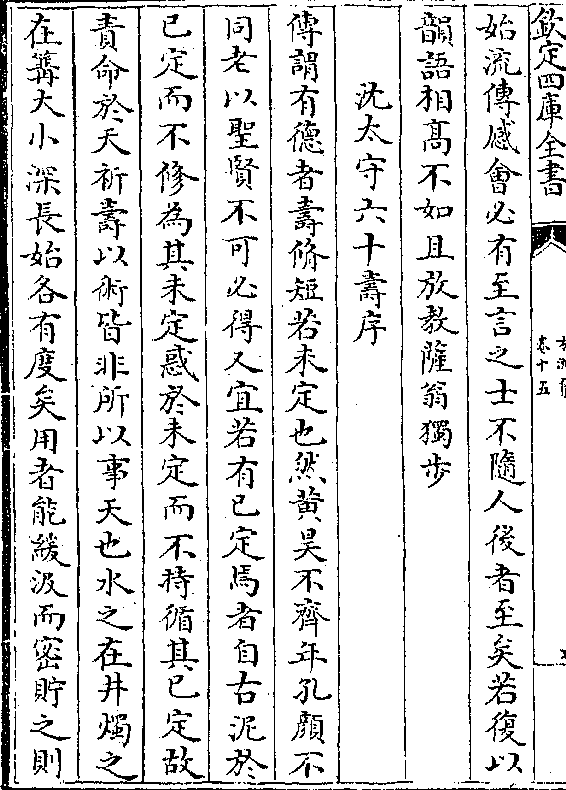 欽定四庫全書
卷十五
始流傳感會必有至言之士不隨人後者至矣若復以
韻語相髙不如且放教薩翁獨步
沈太守六十壽序
傳謂有德者壽脩短若未定也然黄昊不齊年孔顔不
同老以聖賢不可必得又宜若有已定焉者自古泥於
已定而不修為其未定惑於未定而不持循其已定故
責命於天祈壽以術皆非所以事天也水之在井燭之
在篝大小深長始各有度矣用者能緩汲而密貯之則